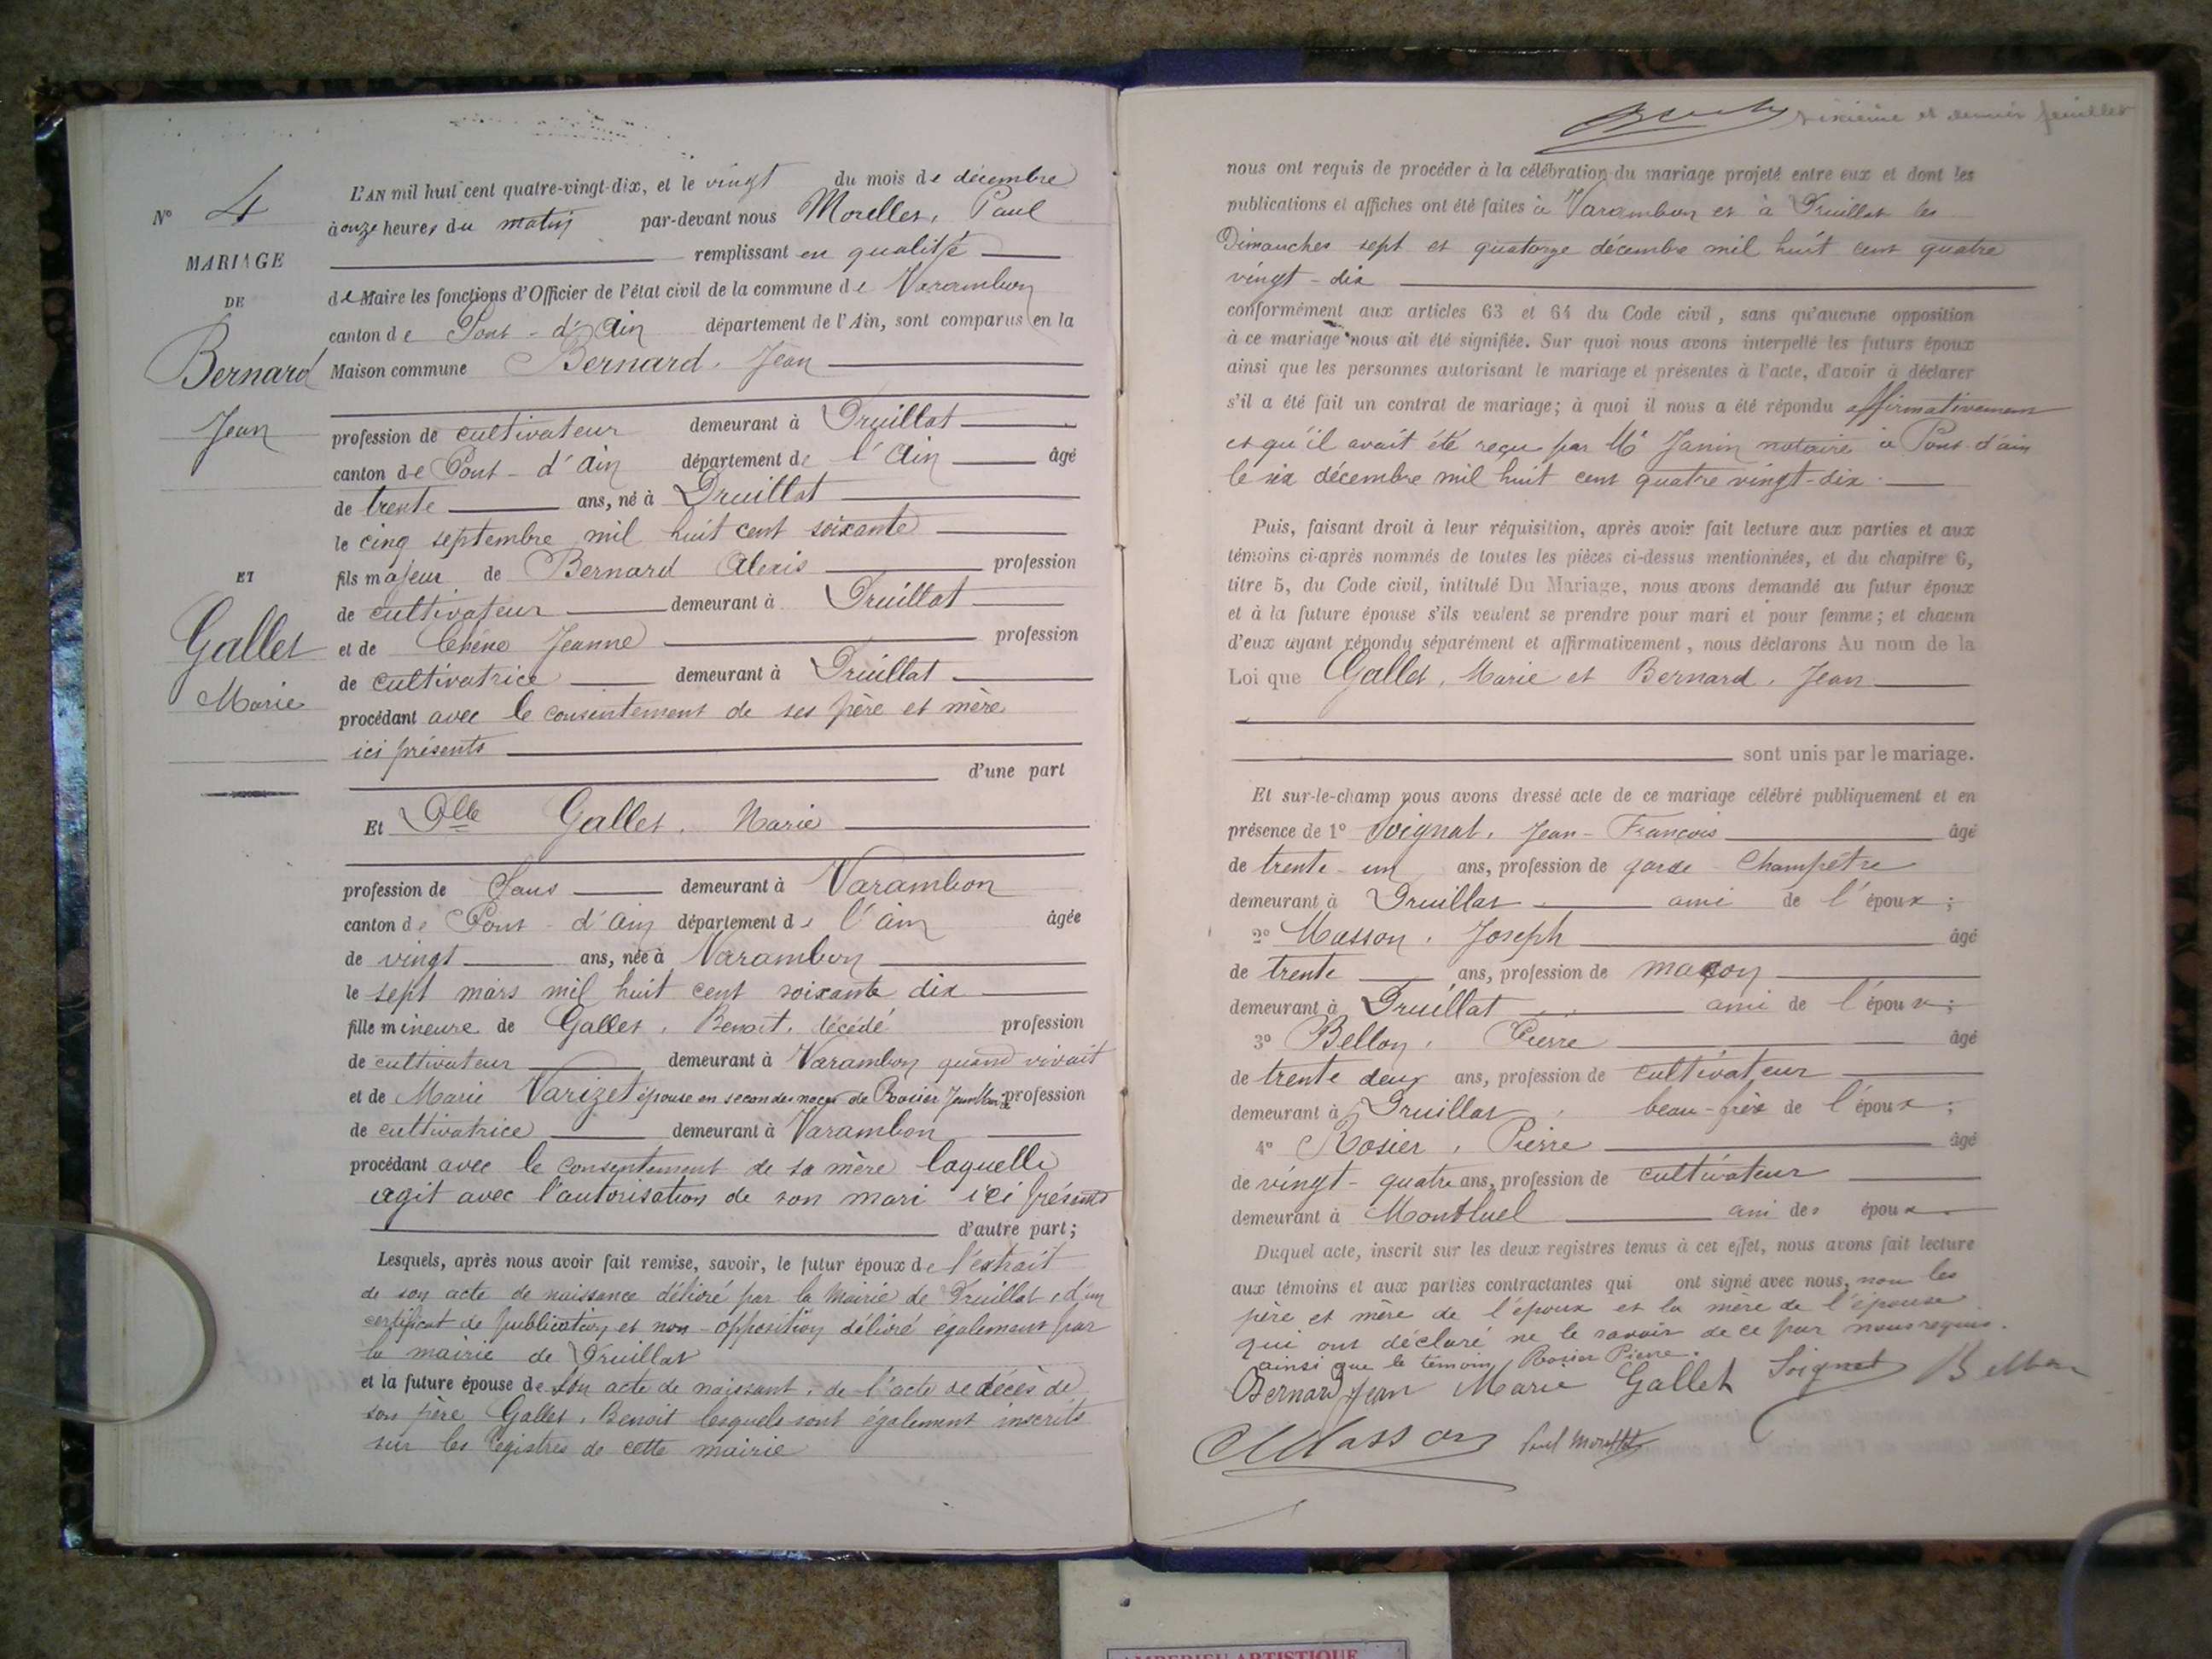 N° 4
MARIAGE
DE
Bernard
Jean
ET
Gallet
Marie
L'AN mil huit cent quatre-vingt-dix, et le vingt du mois de décembre
à onze heures du matin par-devant nous Morellet, Paul
remplissant en qualité
de Maire les fonctions d'Officier de l'état civil de la commune de Varambon
canton de Pont-d'Ain département de l'Ain, sont comparus en la
Maison commune Bernard, Jean
profession de cultivateur demeurant à Druillat
canton de Pont-d'Ain département de l'Ain âgé
de trente ans, né à Druillat
le cinq septembre mil huit cent soixante
fils majeur de Bernard Alexis profession
de cultivateur demeurant à Druillat
et de Chêne Jeanne profession
de cultivatrice demeurant à Druillat
procédant avec le consentement de ses père et mère
ici présents
d'une part
Et Dlle Gallet, Marie
profession de Sans demeurant à Varambon
canton de Pont-d'ain département de l'ain âgée
de vingt ans, née à Varambon
le sept mars mil huit cent soixante dix
fille mineure de Gallet, Benoit, décédé profession
de cultivateur demeurant à Varambon quand vivait
et de Marie Varizet épouse en secondes noces de Rosier Jean profession
de cultivatrice demeurant à Varambon
procédant avec le consentement de sa mère laquelle
agit avec l'autorisation de son mari ici présents
d'autre part;
Lesquels, après nous avoir fait remise, savoir, le futur époux de l'extrait
de son acte de naissance délivré par la Mairie de Druillat, d'un
certificat de publication et non-opposition délivré également par
la mairie de Druillat
et la future épouse de son acte de naissant, de l'acte de décès de
son père Gallet, Benoit lesquels sont également inscrits
sur les registres de cette mairie
sixième et dernier feuillet
nous ont requis de procéder à la célébration du mariage projeté entre eux et dont les
publications et affiches ont été faites à Varambon et à Druillat les
Dimanches sept et quatorze décembre mil huit cent quatre
vingt-dix
conformément aux articles 63 et 64 du Code civil, sans qu'aucune opposition
à ce mariage nous ait été signifiée. Sur quoi nous avons interpellé les futurs époux
ainsi que les personnes autorisant le mariage et présentes à l'acte, d'avoir à déclarer
s'il a été fait un contrat de mariage; à quoi il nous a été répondu affirmativement
et qu'il avait été reçu par Me Janin notaire à Pont-d'ain
le six décembre mil huit cent quatre vingt-dix.
Puis, faisant droit à leur réquisition, après avoir fait lecture aux parties et aux
témoins ci-après nommés de toutes les pièces ci-dessus mentionnées, et du chapitre 6,
titre 5, du Code civil, intitulé Du Mariage, nous avons demandé au futur époux
et à la future épouse s'ils veulent se prendre pour mari et pour femme; et chacun
d'eux ayant répondu séparément et affirmativement, nous déclarons Au nom de la
Loi que Gallet, Marie et Bernard, Jean
sont unis par le mariage.
Et sur-le-champ nous avons dressé acte de ce mariage célébré publiquement et en
présence de 1° Soignat, Jean-François âgé
de trente-un ans, profession de garde Champêtre
demeurant à Druillat ami de l'époux;
2° Masson, Joseph âgé
de trente ans, profession de maçon
demeurant à Druillat ami de l'époux;
3° Bellon, Pierre âgé
de trente deux ans, profession de cultivateur
demeurant à Druillat, beau-frère de l'époux;
4° Rosier, Pierre âgé
de vingt-quatre ans, profession de cultivateur
demeurant à Montluel ami des époux.
Duquel acte, inscrit sur les deux registres tenus à cet effet, nous avons fait lecture
aux témoins et aux parties contractantes qui ont signé avec nous, non les
père et mère de l'époux et la mère de l'épouse
qui ont déclaré ne le savoir de ce par nous requis.
ainsi que le témoin Rosier Pierre.
Bernard Jean Marie Gallet Soignat Bellon
Masson Paul Morellet
AMBERIEU ARTISTIQUE